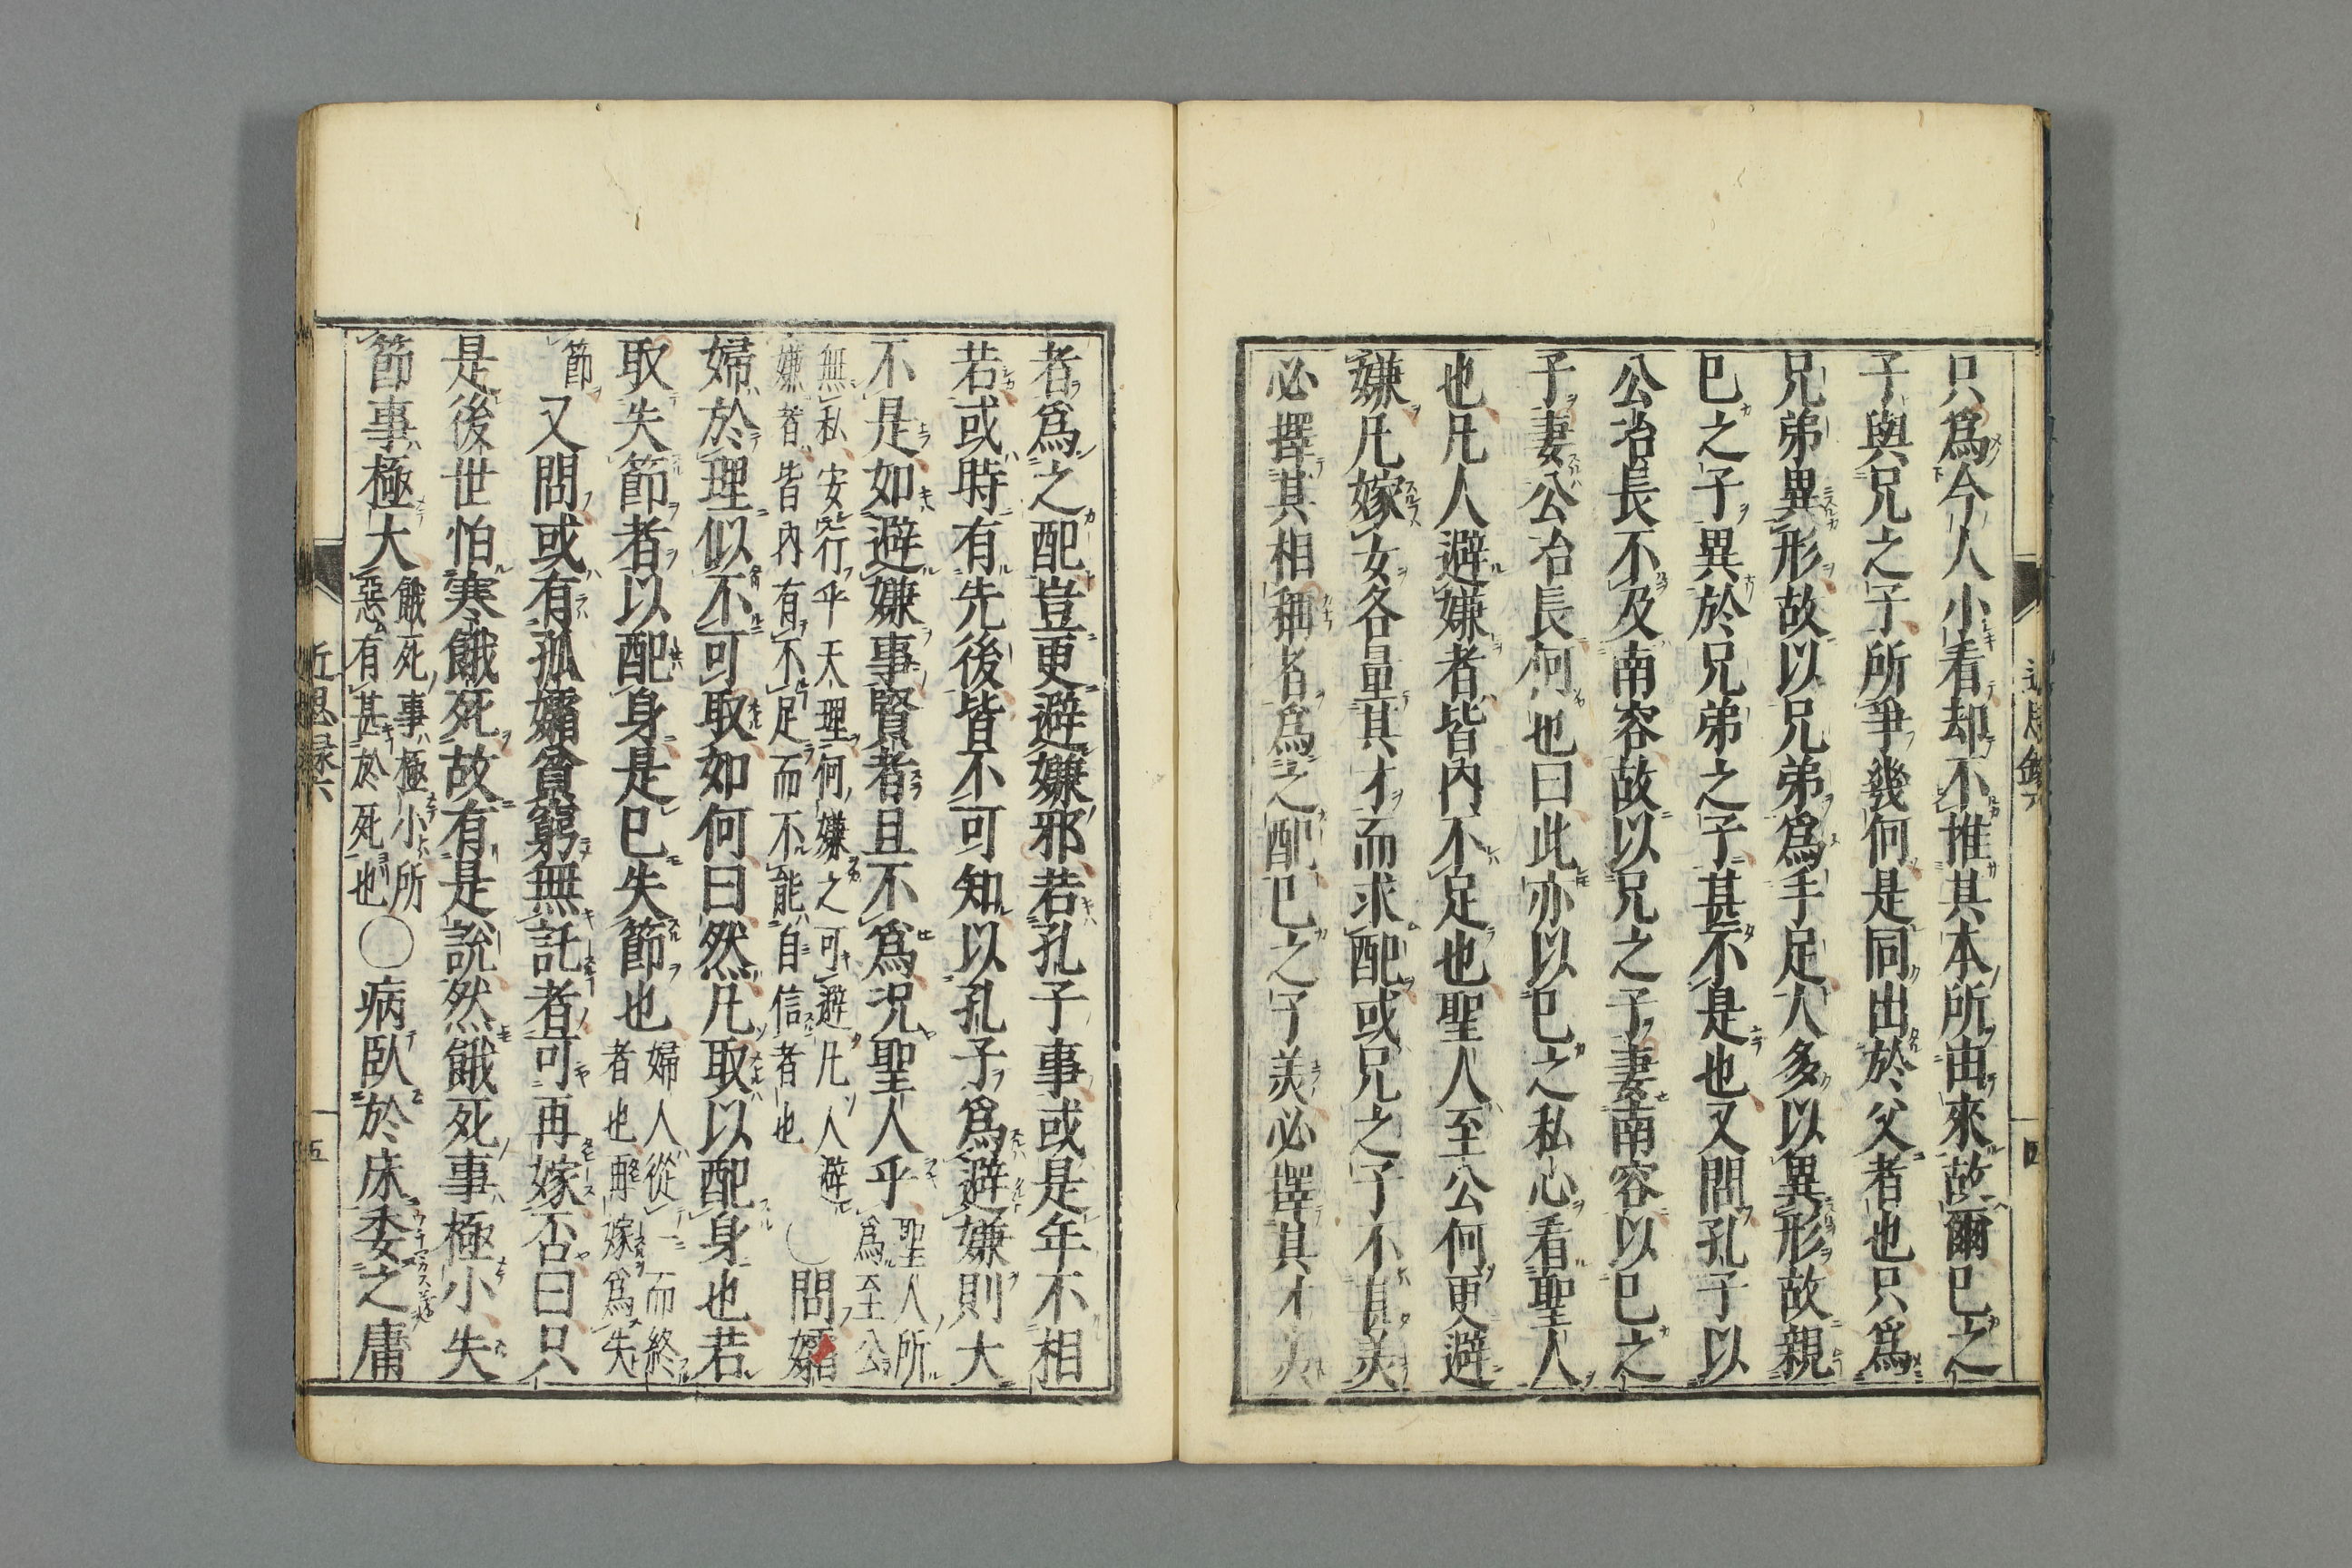 只爲今人小看却不推其本所由來故爾已之
子與兄之子所爭幾何是同出於父者也只爲
兄弟異形故以兄弟爲手足人多以異形故親
已之子異於兄弟之子甚不是也又問孔子以
公冶長不及南容故以兄之子妻南容以已之
子妻公冶長何也曰此亦以已之私心看聖人
也凡人避嫌者皆内不足也聖人至公何更避
嫌凡嫁女各量其才而求配或兄之子不甚美
必擇其相稱者爲之配已之子美必擇其才美
者爲之配豈更避嫌邪若孔子事或是年不相
若或時有先後皆不可知以孔子爲避嫌則大
不是如避嫌事賢者且不爲況聖人乎聖人所
爲至公
無私安行乎天理何嫌之可避凡人避
嫌者皆内有不足而不能自信者也
〇問孀
婦於理似不可取如何曰然凡取以配身也若
取失節者以配身是已失節也婦人從一而終
者也再嫁爲失
節
又問或有孤孀貧窮無託者可再嫁否曰只
是後世怕寒餓死故有是說然餓死事極小失
節事極大
餓死事極小所
惡有甚於死也
〇病臥於床委之庸
近思録六
五